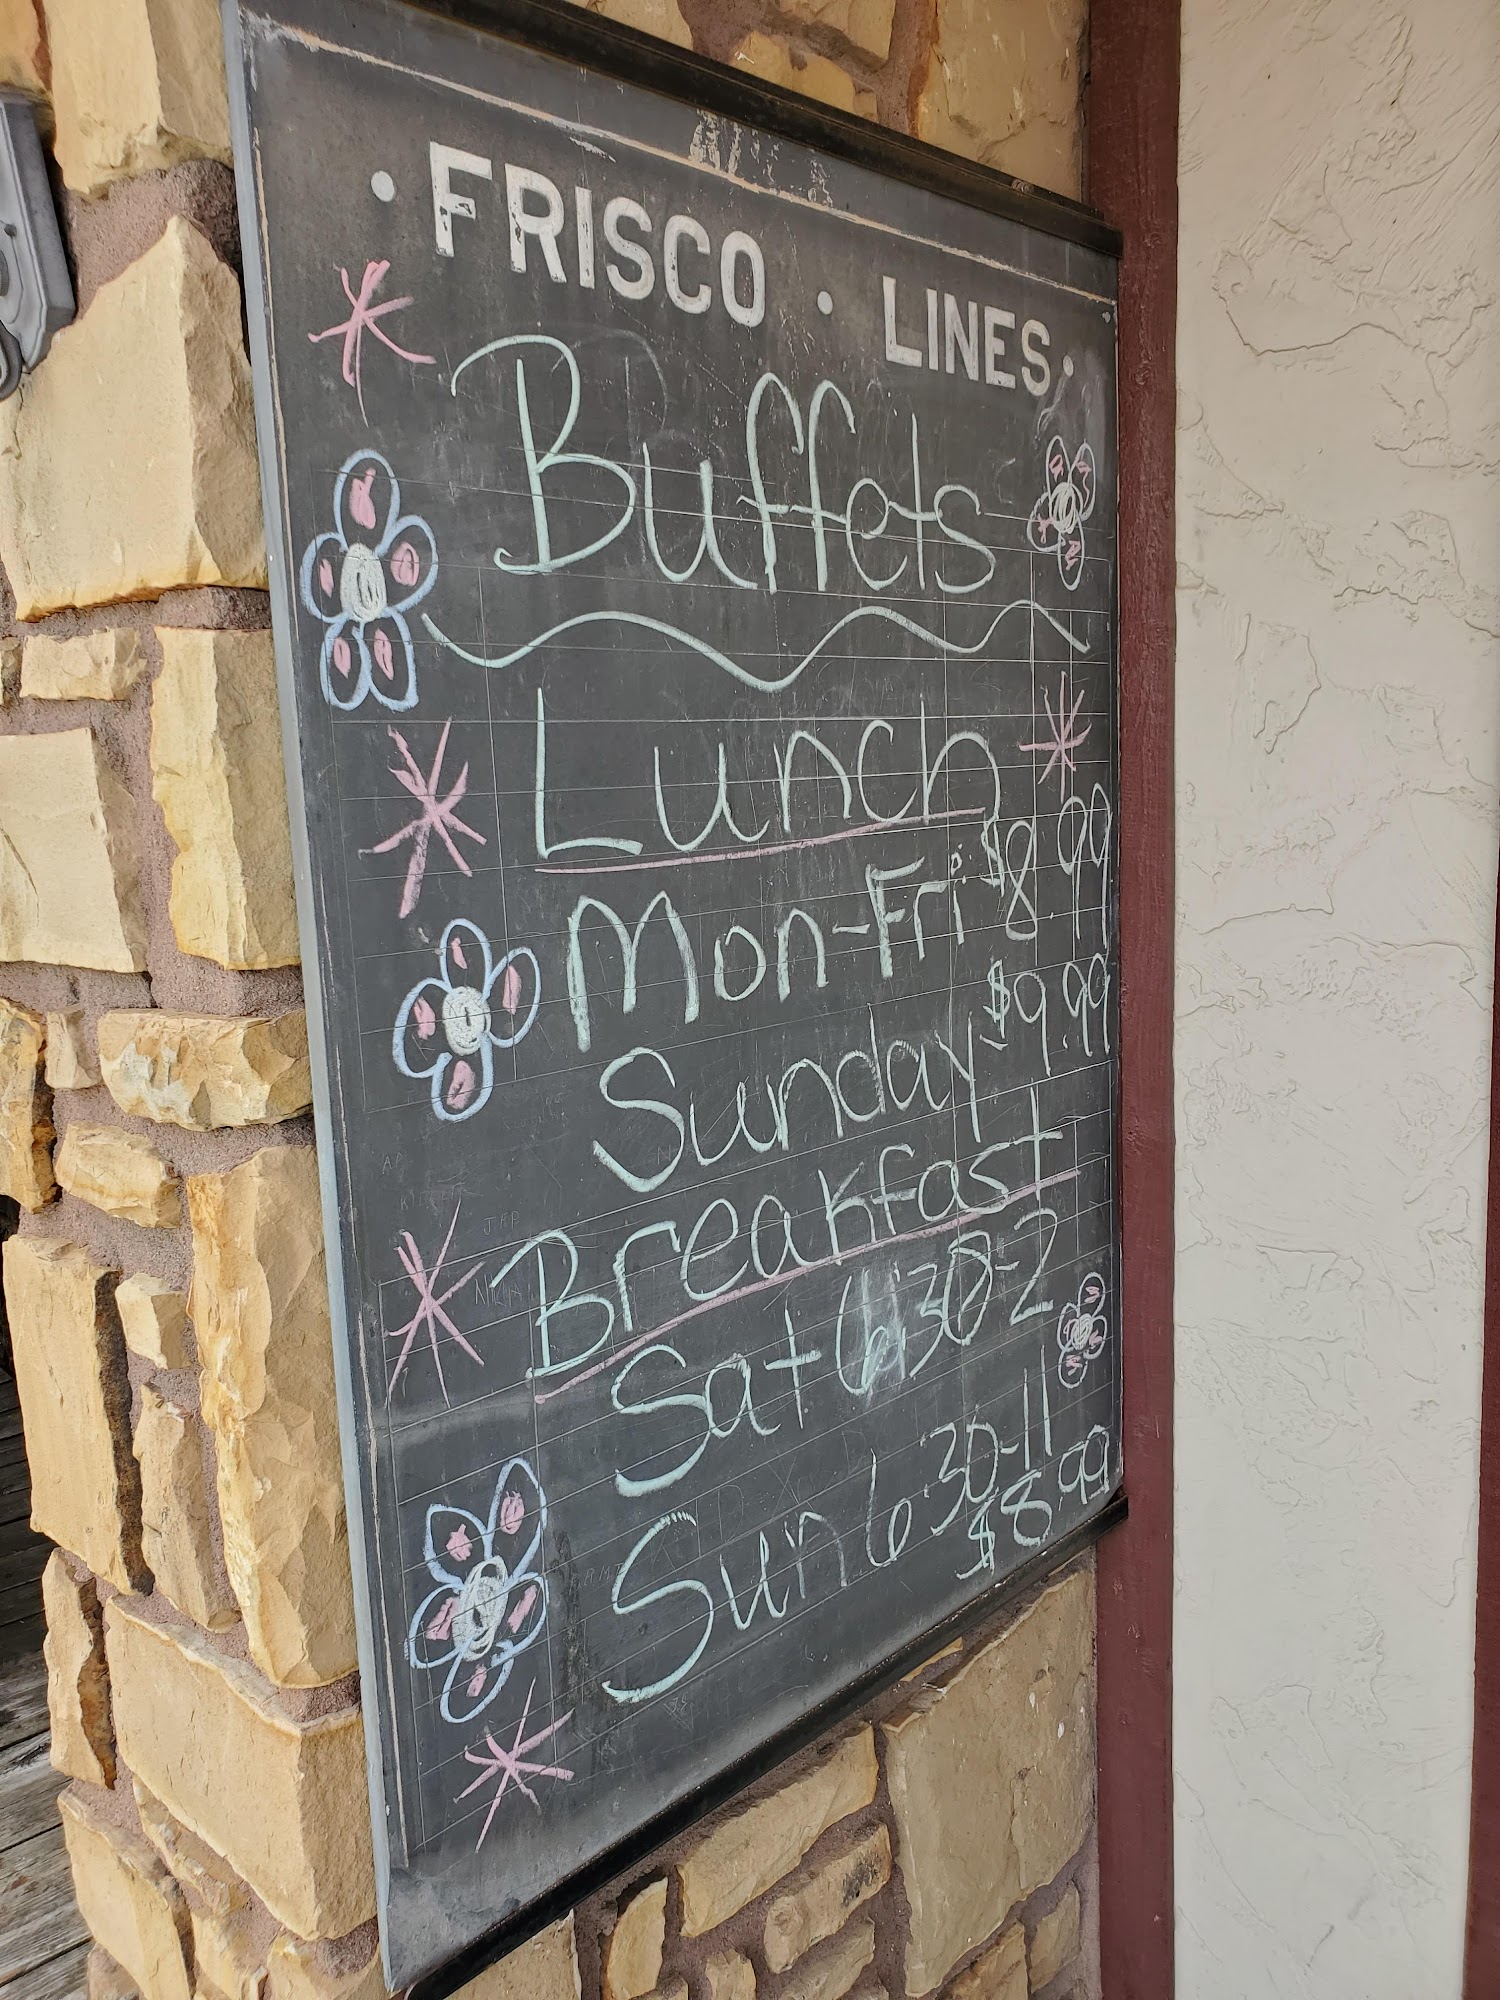 • FRISCO • LINES •
Buffets
Lunch
Mon-Fri: $8.99
Sunday $9.99
Breakfast
Sat 6:30-2
Sun 6:30-11
$8.99